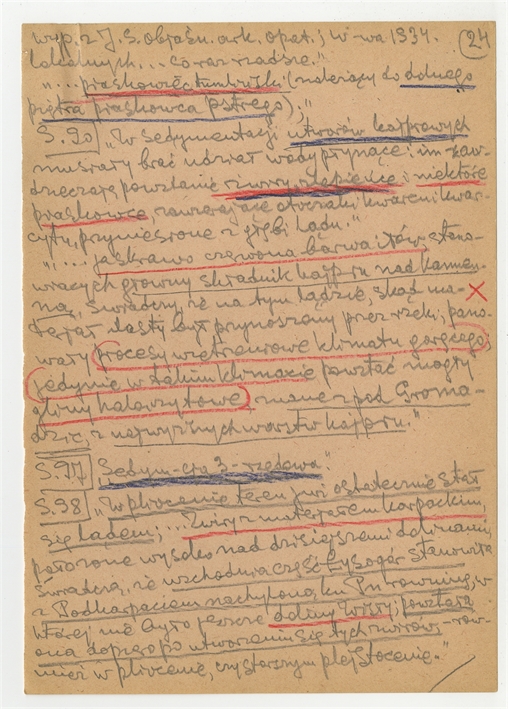 wyp. z J. S. objaśn. ark. opat.; W-wa 1934. (24)
lokalnych... coraz rzadsze."
"... piaskowiec tumliński (należący do dolnego
piętra piaskowca pstrego);"
S. 90) "W sedymentacji utworów kajprowych
musiały brać udział wody płynące i im zaw-
dzięczają powstanie żwiry, zlepieńce i niektóre
piaskowce, zawierające otoczaki kwarcu i kwar-
cytu, przyniesione z głębi lądu."
"... jaskrawo czerwona barwa iłów, stano-
wiących główny składnik kajpru nad Kamien-
ną, świadczy, że na tym lądzie, skąd ma-
teriał ilasty był przynoszony przez rzeki, pano-
wały procesy wietrzeniowe klimatu gorącego;
jedynie w takim klimacie powstać mogły
gliny halloyzytowe znane z pod Groma-
dzic, z najwyższych warstw kajpru."
S. 97 "Sedym-cja 3-rzędowa"
S. 98 "W pliocenie teren jest ostatecznie stał
się lądem; ... żwiry z materjałem karpackim,
położone wysoko nad dzisiejszemi dolinami
świadczą, że wschodnia część Łysogór stanowiła
z Podkarpaciem nachyloną ku Pn równinę, w
której nie było jeszcze doliny Wisły; powstała
ona dopiero po utworzeniu się tych żwirów, - rów-
nież w pliocenie, czy starszym plejstocenie."